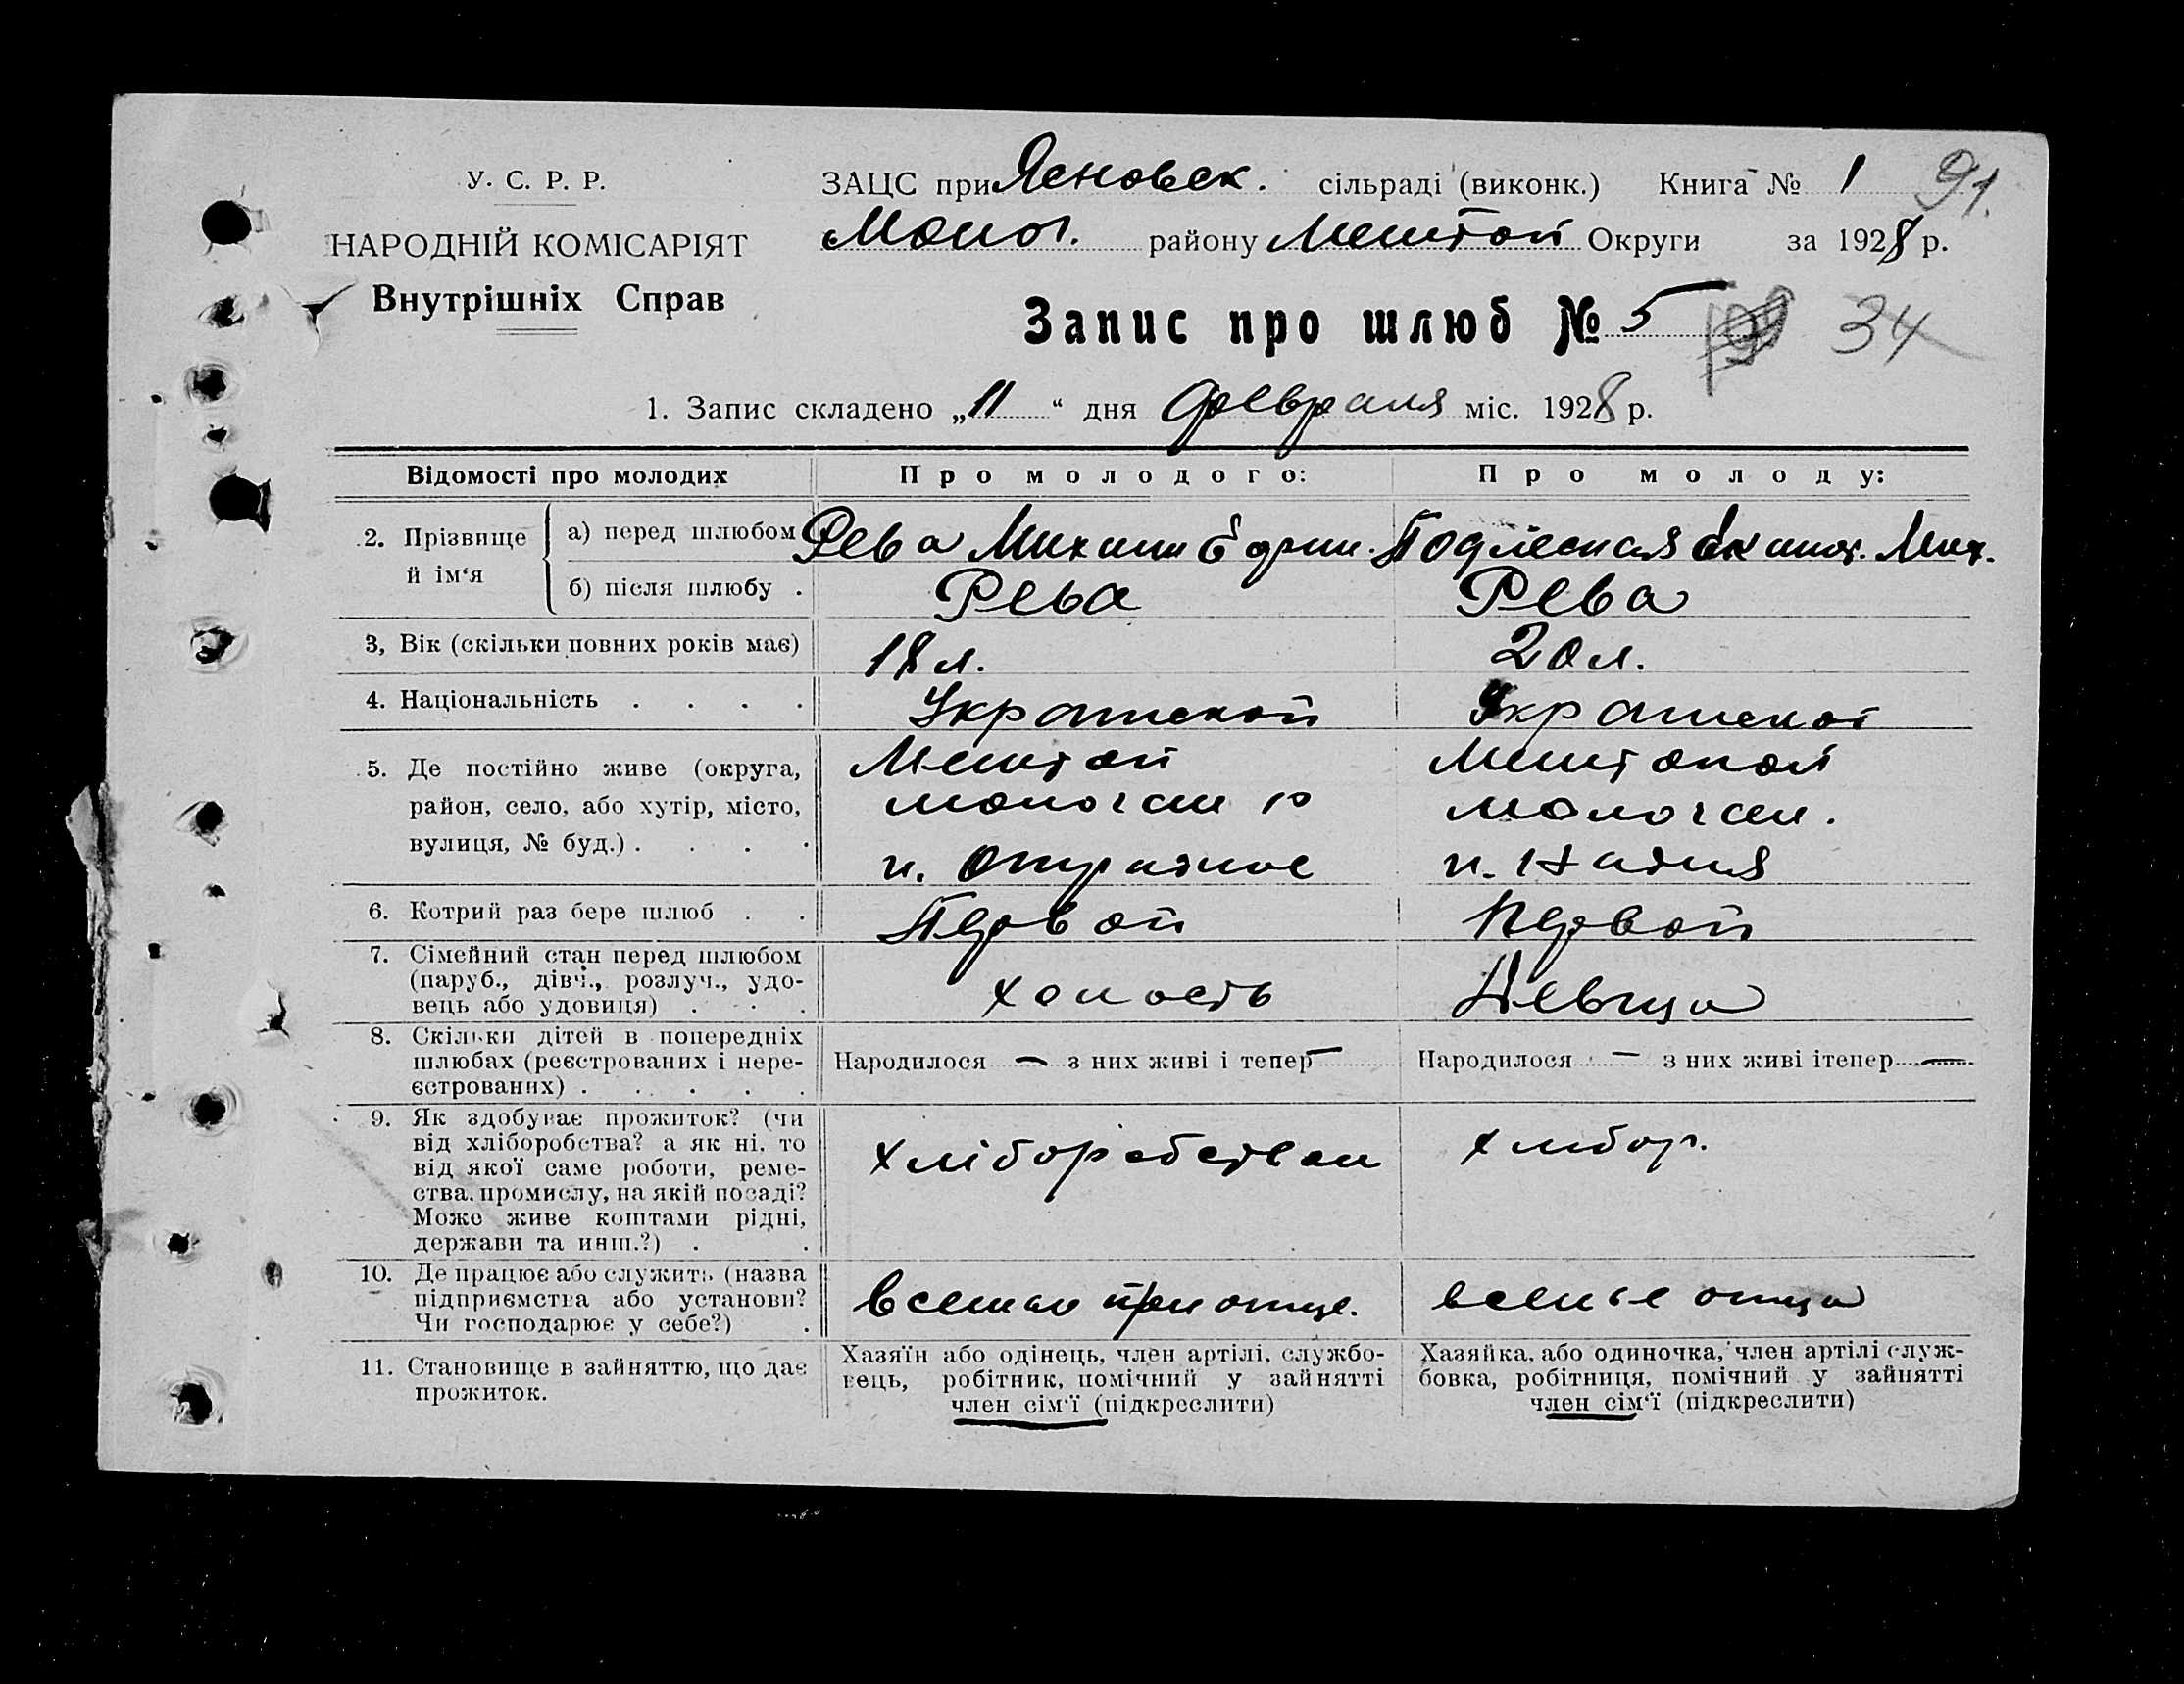 У. С. Р. Р.
НАРОДНІЙ КОМІСАРІЯТ
Внутрішніх Справ
ЗАЦС при Ясновск. сільраді (виконк.) Книга № 1 91.
Молоч. району Округи за 1928 р.
Запис про шлюб № 5 34
1. Запис складено „11“ дня февраля міс. 1928 р.
Відомості про молодих Про молодого: Про молоду:
2. Прізвище й ім‘я
а) перед шлюбом Рева Михаил Подлесная Мих.
б) після шлюбу . Рева Рева
3, Вік (скільки повних років має) 18 л. 20 л.
4. Національність . . . . Украинской Украинской
5. Де постійно живе (округа,
район, село, або хутір, місто,
вулиця, № буд.) . . . .
Мелитоп
молочан р
п. Отрадное
Мелитопол
молочан.
п. Надия
6. Котрий раз бере шлюб . . Первой Первой
7. Сімейний стан перед шлюбом
(паруб., дівч., розлуч., удо-
вець або удовиця) . . .
холость Девица
8. Скільки дітей в попередніх
шлюбах (реєстрованих і нере-
єстрованих) . . . . .
Народилося — з них живі і тепер — Народилося — з них живі ітепер —
9. Як здобуває прожиток? (чи
від хліборобства? а як ні, то
від якої саме роботи, реме-
ства, промислу, на якій посаді?
Може живе коштами рідні,
держави та инш.?) . .
хліборобством хлибор.
10. Де працює або служить (назва
підприємства або установи?
Чи господарює у себе?) .
в семье при отце. в семье отца
11. Становище в зайняттю, що дає
прожиток.
Хазяїн або одінець, член артілі, службо-
вець, робітник, помічний у зайнятті
член сім‘ї (підкреслити)
Хазяйка, або одиночка, член артілі служ-
бовка, робітниця, помічний у зайнятті
член сім‘ї (підкреслити)